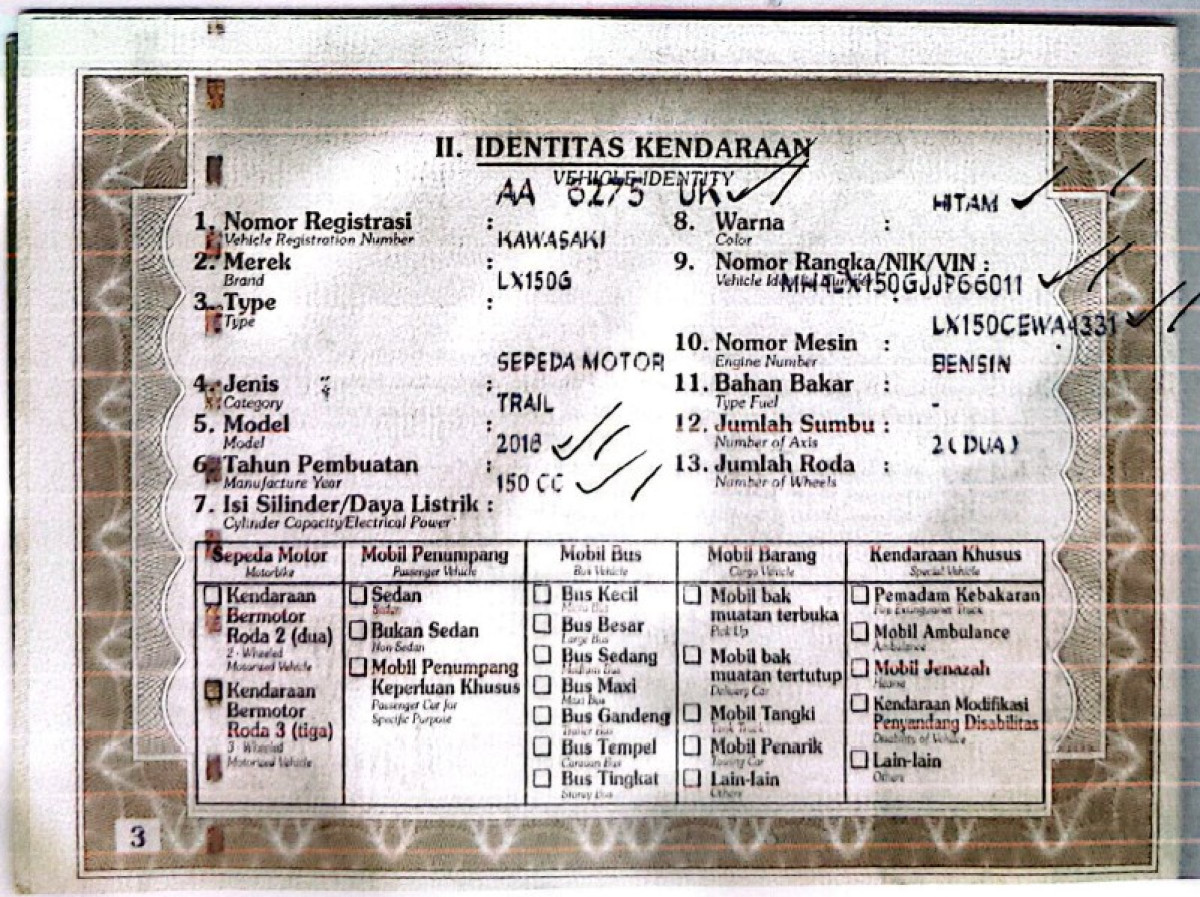 II. IDENTITAS KENDARAAN
VEHICLE IDENTITY
AA 6275 UK
1. Nomor Registrasi :
Vehicle Registration Number
KAWASAKI
2. Merek :
Brand
LX150G
3. Type :
Type
SEPEDA MOTOR
4. Jenis :
Category
TRAIL
5. Model :
Model
2018
6. Tahun Pembuatan :
Manufacture Year
150 CC
7. Isi Silinder/Daya Listrik :
Cylinder Capacity/Electrical Power
HITAM
8. Warna :
Color
9. Nomor Rangka/NIK/VIN :
Vehicle Identity Number
MH4LX150GJJP66011
LX150CEWA4331
10. Nomor Mesin :
Engine Number
BENSIN
11. Bahan Bakar :
Type Fuel
-
12. Jumlah Sumbu :
Number of Axis
2 ( DUA )
13. Jumlah Roda :
Number of Wheels
Sepeda Motor
Motorbike
Kendaraan
Bermotor
Roda 2 (dua)
2 - Wheeled
Motorized Vehicle
Kendaraan
Bermotor
Roda 3 (tiga)
3 - Wheeled
Motorized Vehicle
Mobil Penumpang
Passenger Vehicle
Sedan
Sedan
Bukan Sedan
Non Sedan
Mobil Penumpang
Keperluan Khusus
Passenger Car for
Specific Purpose
Mobil Bus
Bus Vehicle
Bus Kecil
Micro Bus
Bus Besar
Large Bus
Bus Sedang
Medium Bus
Bus Maxi
Maxi Bus
Bus Gandeng
Trailer Bus
Bus Tempel
Caravan Bus
Bus Tingkat
Storey Bus
Mobil Barang
Cargo Vehicle
Mobil bak
muatan terbuka
Pick Up
Mobil bak
muatan tertutup
Delivery Car
Mobil Tangki
Tank Truck
Mobil Penarik
Towing Car
Lain-lain
Others
Kendaraan Khusus
Special Vehicle
Pemadam Kebakaran
Fire Extinguisher Truck
Mobil Ambulance
Ambulance
Mobil Jenazah
Hearse
Kendaraan Modifikasi
Penyandang Disabilitas
Disability of Vehicle
Lain-lain
Others
3